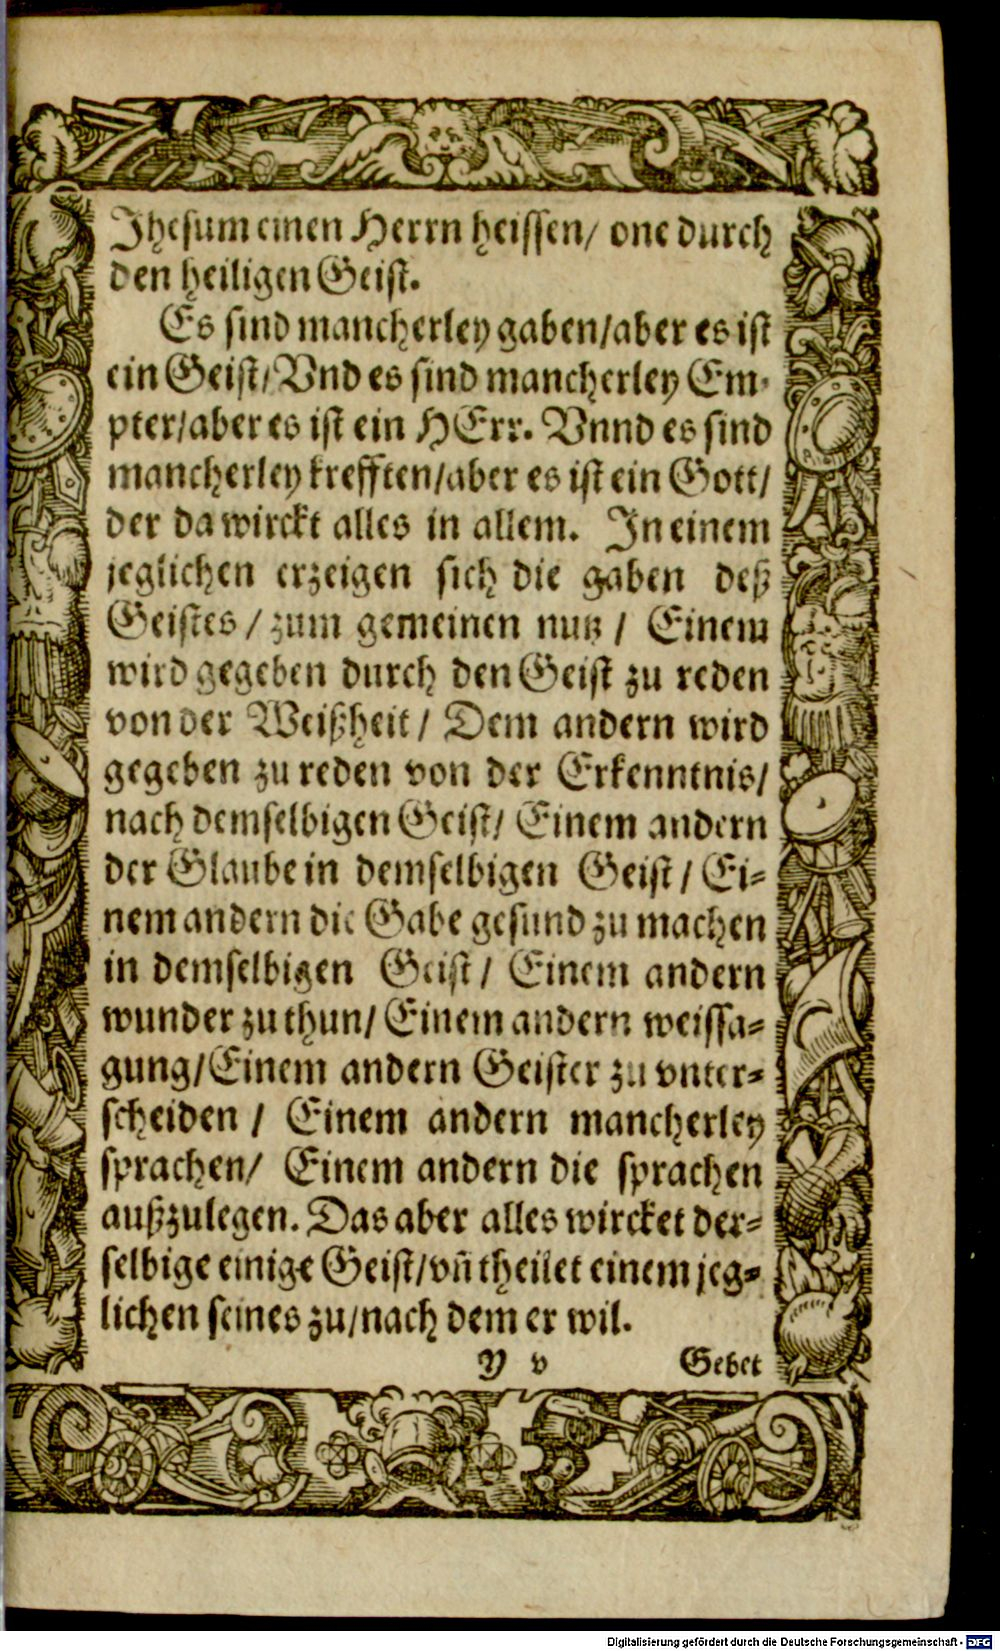 Jhesum einen Herrn heissen/ one durch
den heiligen Geist.
Es sind mancherley gaben/aber es ist
ein Geist/Vnd es sind mancherley Em-
pter/aber es ist ein HErr. Vnnd es sind
mancherley krefften/aber es ist ein Gott/
der da wirckt alles in allem. In einem
jeglichen erzeigen sich die gaben deß
Geistes/ zum gemeinen nutz/ Einem
wird gegeben durch den Geist zu reden
von der Weißheit/ Dem andern wird
gegeben zu reden von der Erkenntnis/
nach demselbigen Geist/ Einem andern
der Glaube in demselbigen Geist/ Ei-
nem andern die Gabe gesund zu machen
in demselbigen Geist/ Einem andern
wunder zu thun/ Einem andern weissa-
gung/Einem andern Geister zu vnter-
scheiden/ Einem andern mancherley
sprachen/ Einem andern die sprachen
außzulegen. Das aber alles wircket der-
selbige einige Geist/vñ theilet einem jeg-
lichen seines zu/nach dem er wil.
Y v Gebet
Digitalisierung gefördert durch die Deutsche Forschungsgemeinschaft - DFG